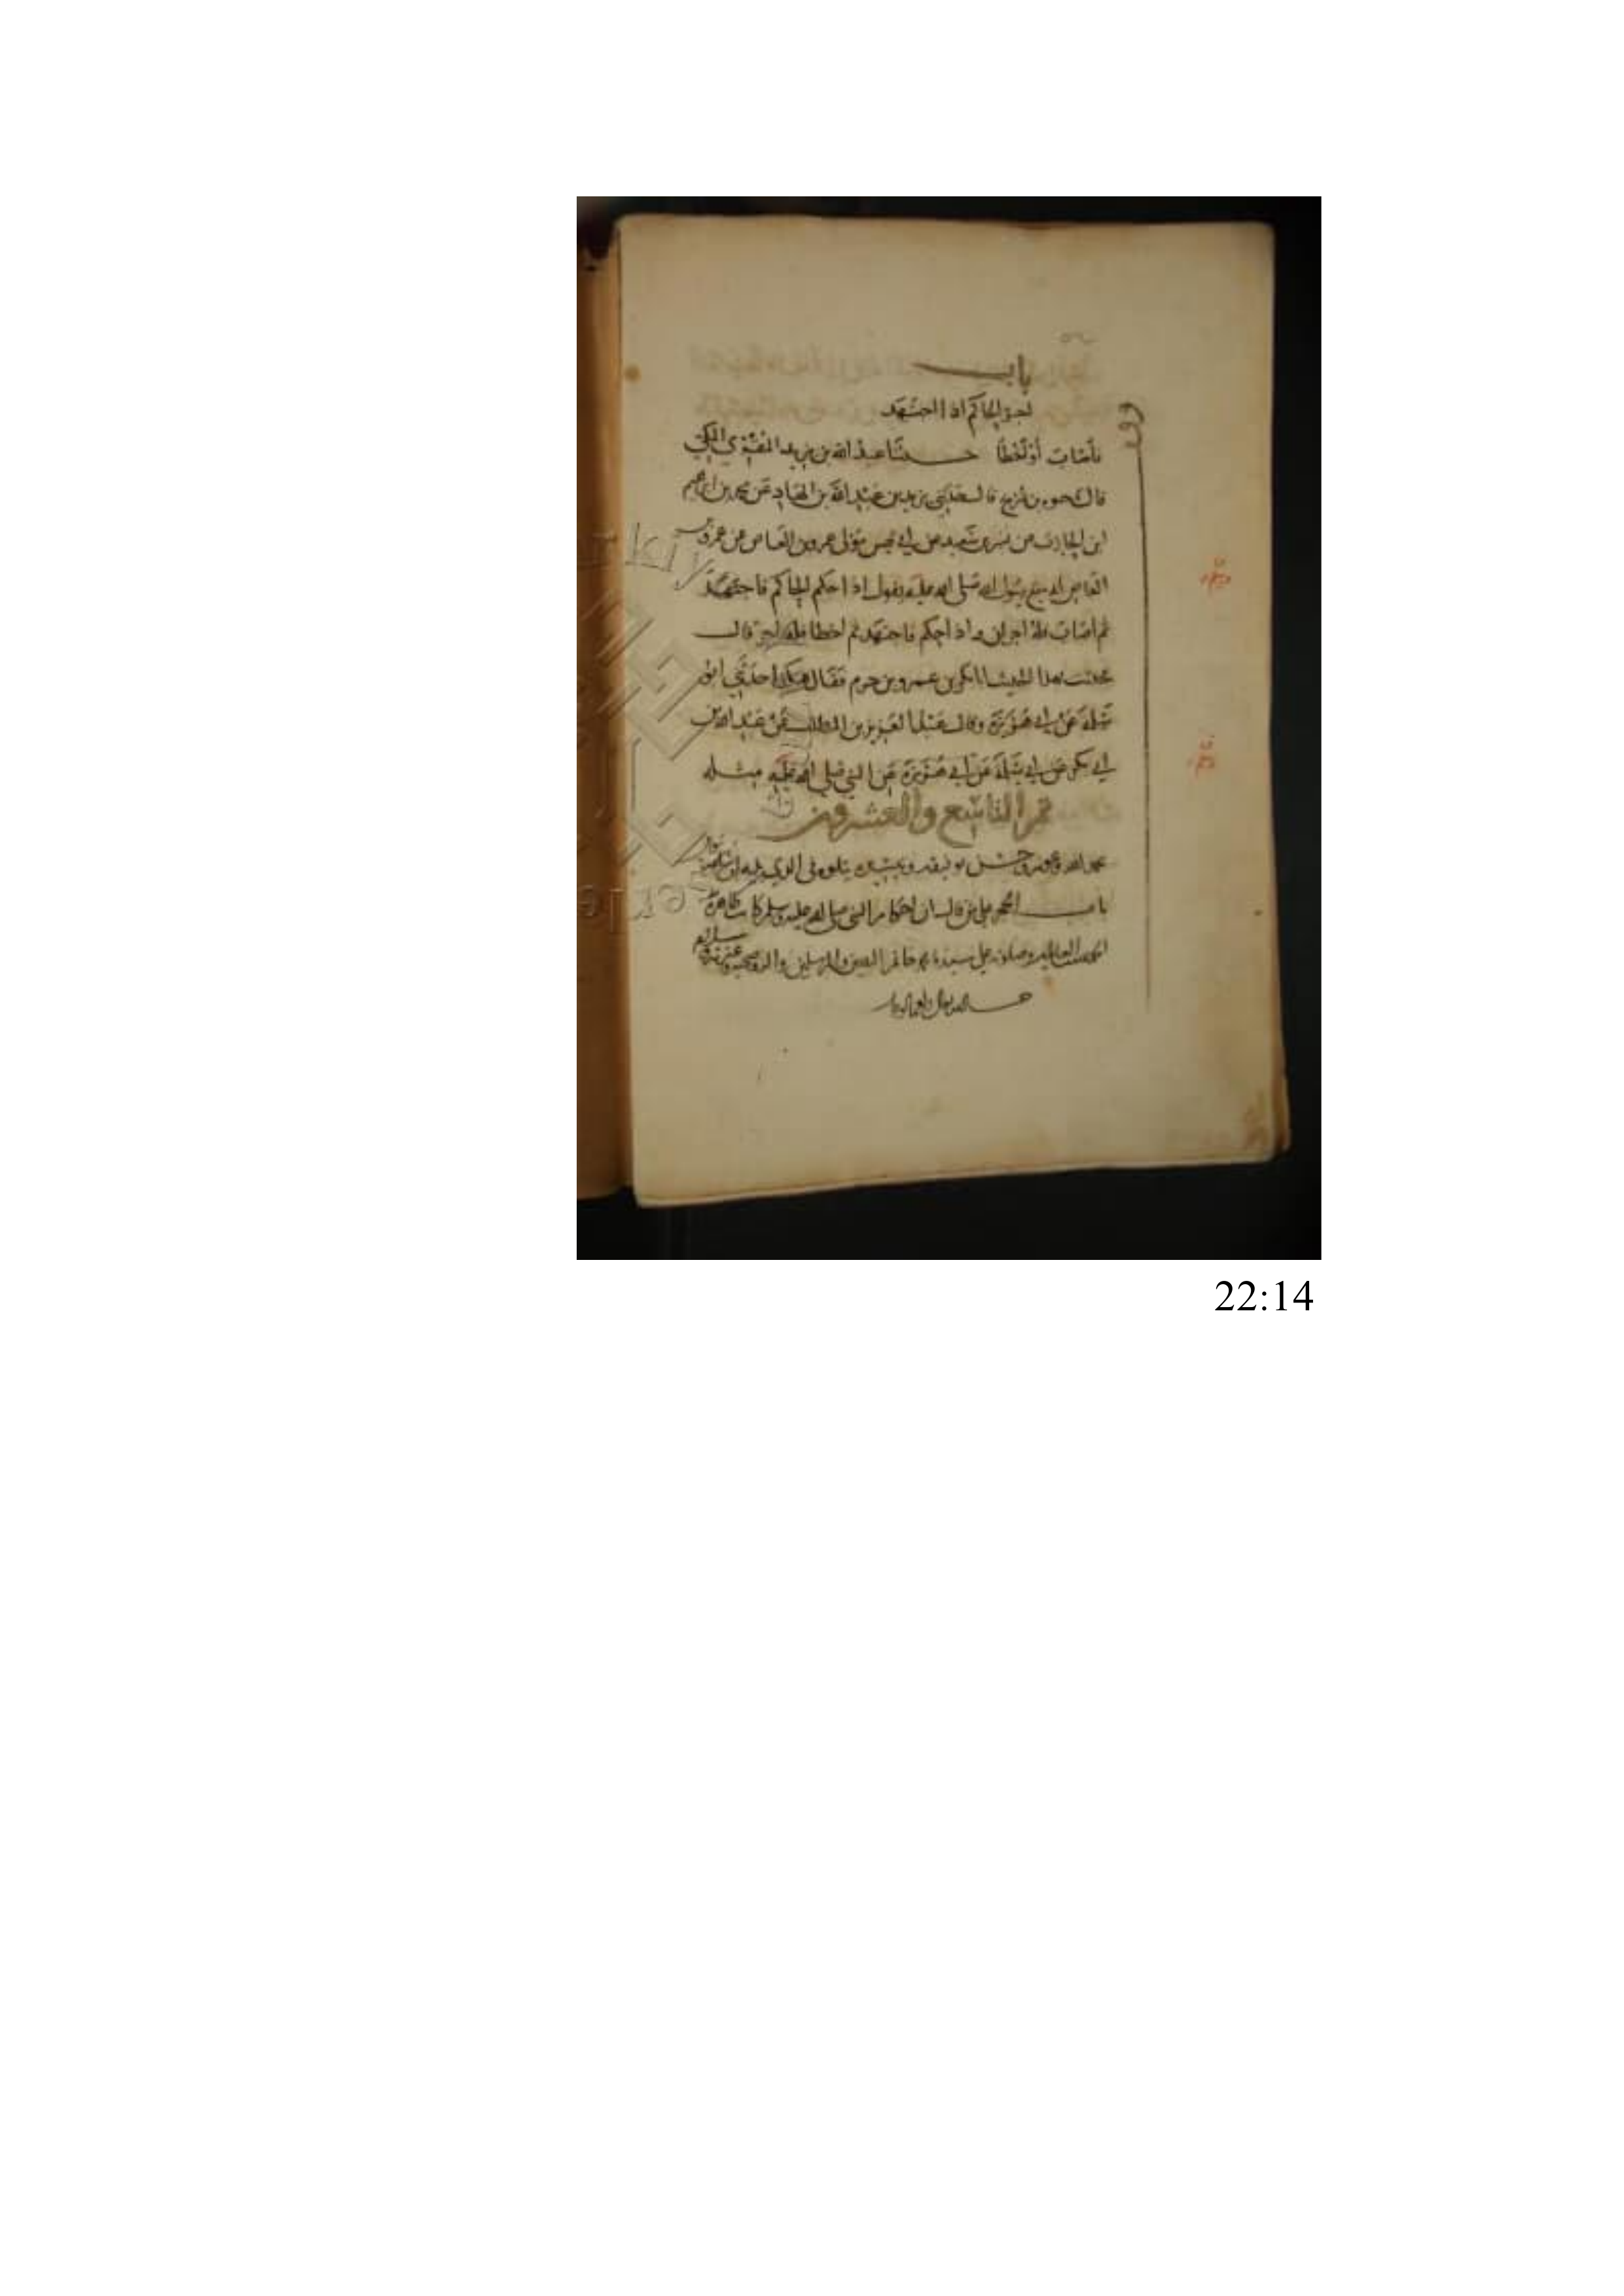 باب
اجر الحاكم اذا اجتهد
فأصاب أو أخطأ حدثنا عبد الله بن يزيد المقرئ المكي
قال حيوة بن شريح قال حدثني يزيد بن عبد الله بن الهاد عن محمد بن ابراهيم
ابن الحارث عن بسر بن سعيد عن ابي قيس مولى عمرو بن العاص عن عمرو بن
العاص انه سمع رسول الله صلى الله عليه يقول اذا حكم الحاكم فاجتهد
ثم أصاب فله اجران واذا حكم فاجتهد ثم اخطأ فله اجر قال
فحدثت بهذا الحديث ابا بكر بن عمرو بن حزم فقال هكذا حدثني ابو
سلمة عن ابي هريرة وقال عبد العزيز بن المطلب عن عبد الله بن
ابي بكر عن ابي سلمة عن ابي هريرة عن النبي صلى الله عليه مثله
تم التاسع والعشرون
بحمد الله وعونه وحسن توفيقه يتلوه في الذي يليه ان شاء
باب الحجة على من قال ان احكام النبي صلى الله عليه وسلم كانت ظاهرة
العالمين وصلوته على سيدنا محمد خاتم النبيين والمرسلين واله وصحبه
حسبنا الله ونعم الوكيل
22:14